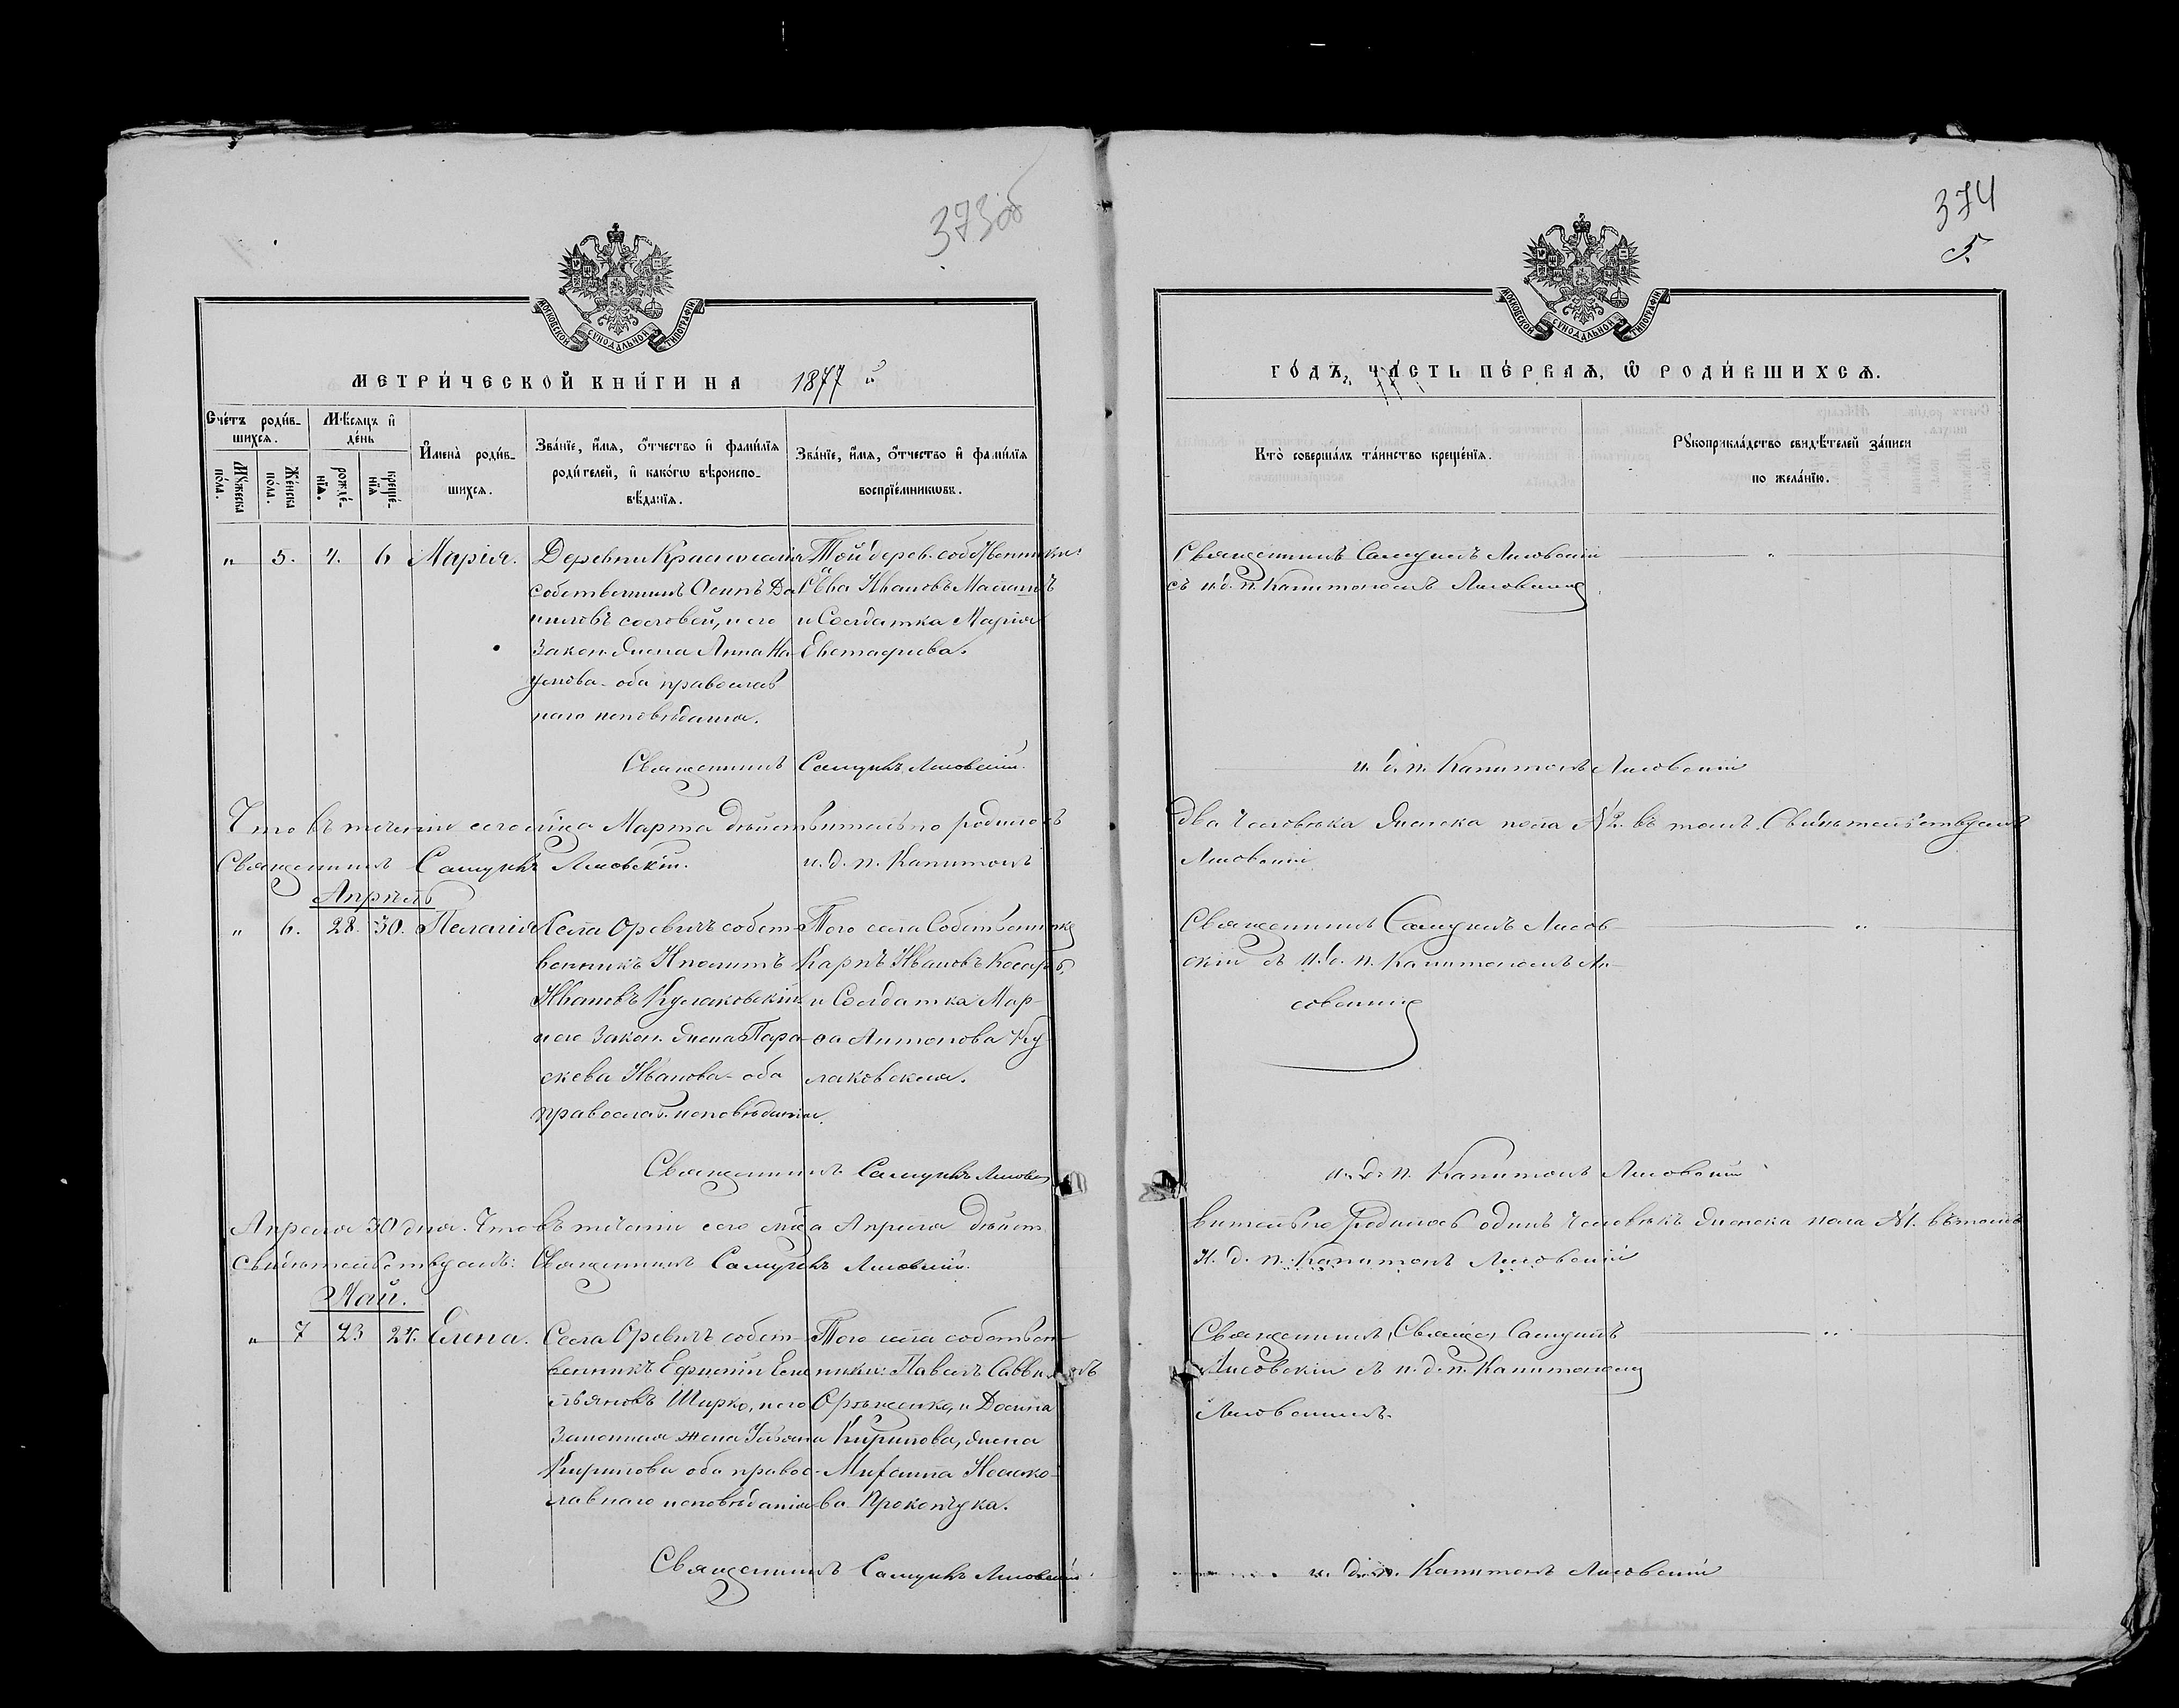 373об
МОСКОВСКОЙ СѴНОДАЛЬНОЙ ТИПОГРАФІИ
МЕТРИ́ЧЕСКОЙ КНИ́ГИ НА 1877 й
Сче́тъ роди́в-
шихся.
Мѣ́сяцъ и҆
де́нь
Мꙋ́жеска по́ла.
Же́нска по́ла.
рожде́-
нїѧ.
креще́-
нїѧ
И҆мена̀ роди́в-
шихсѧ.
Зва́нїе, и҆́мѧ, ѻ҆́тчество и҆ фами́лїѧ
роди́телей, и҆ како́гѡ вѣроиспо-
вѣ́данїѧ.
Зва́нїе, и҆́мѧ, ѻ҆́тчество и҆ фами́лїѧ
воспрїе́мникѡвъ.
" 5. 4. 6 Марія.
собственникъ Осипъ Да
ниловъ
и его
Закон. жена Анна На
умова оба православ
наго исповѣданія.
Той дерев. собственники:
Ива Ивановъ
и Солдатка Марія
Евстафиева.
Священникъ Самуилъ Лисовскій.
Что въ теченіи сего м҃ца Марта дѣйствительно родилось
Священникъ Самуилъ Лисовскій. и. д. п. Капитонъ
Апрѣль
" 6. 28. 30. Пелагія
Села Оревичъ собст-
венникъ Иполитъ
Ивановъ Кулаковскій
и его Закон. жена Пара-
скева Иванова оба
православ. исповѣданія.
Того села Собственникъ
Карпъ Ивановъ
и Солдатка Мар-
ѳа Антонова Ку
лаковская.
Священникъ Самуилъ Лисовск
Апреля 30 дня. Что въ теченіи сего м҃ца Апреля дѣйст
свидѣтельствуемъ: Священникъ Самуилъ Лисовскій.
Май.
" 7 23 24. Елена.
Села Оревичъ собст-
венникъ Ефимій Еме
льяновъ Ширко, и его
Законная жена Ульяна
Кирилова оба правос-
лавнаго исповѣданія
Того села собствен
ники: Павелъ Саввинъ
и Домна
Кирилова, жена
Михаила Исако-
ва Прокопчука.
Священникъ Самуилъ Лисовскій
374
5.
МОСКОВСКОЙ СѴНОДАЛЬНОЙ ТИПОГРАФІИ
ГО́ДЪ, ЧА́СТЬ ПЕ́РВАѦ, Ѡ҆ РОДИ́ВШИХСѦ.
Кто̀ соверша́лъ та́инство креще́нїѧ.
Рꙋкоприкла́дство свидѣ́телей за́писи
по жела́нїю.
Священникъ Самуилъ Лисовскій
съ и. д. п. Капитономъ Лисовскимъ
и. д. п. Капитонъ Лисовскій
два человѣка женска пола №2. въ томъ. Свидѣтельствуемъ
Лисовскій
Священникъ Самуилъ Лисов
скій съ и. д. п. Капитономъ Ли-
совскимъ
и. д. п. Капитонъ Лисовскій
вительно родилось одинъ человѣкъ женска пола №1. въ томъ
И. д. п. Капитонъ Лисовскій
Священникъ, Самуилъ
Лисовскій съ и. д. п. Капитономъ
Лисовскимъ.
и. д. п. Капитонъ Лисовскій